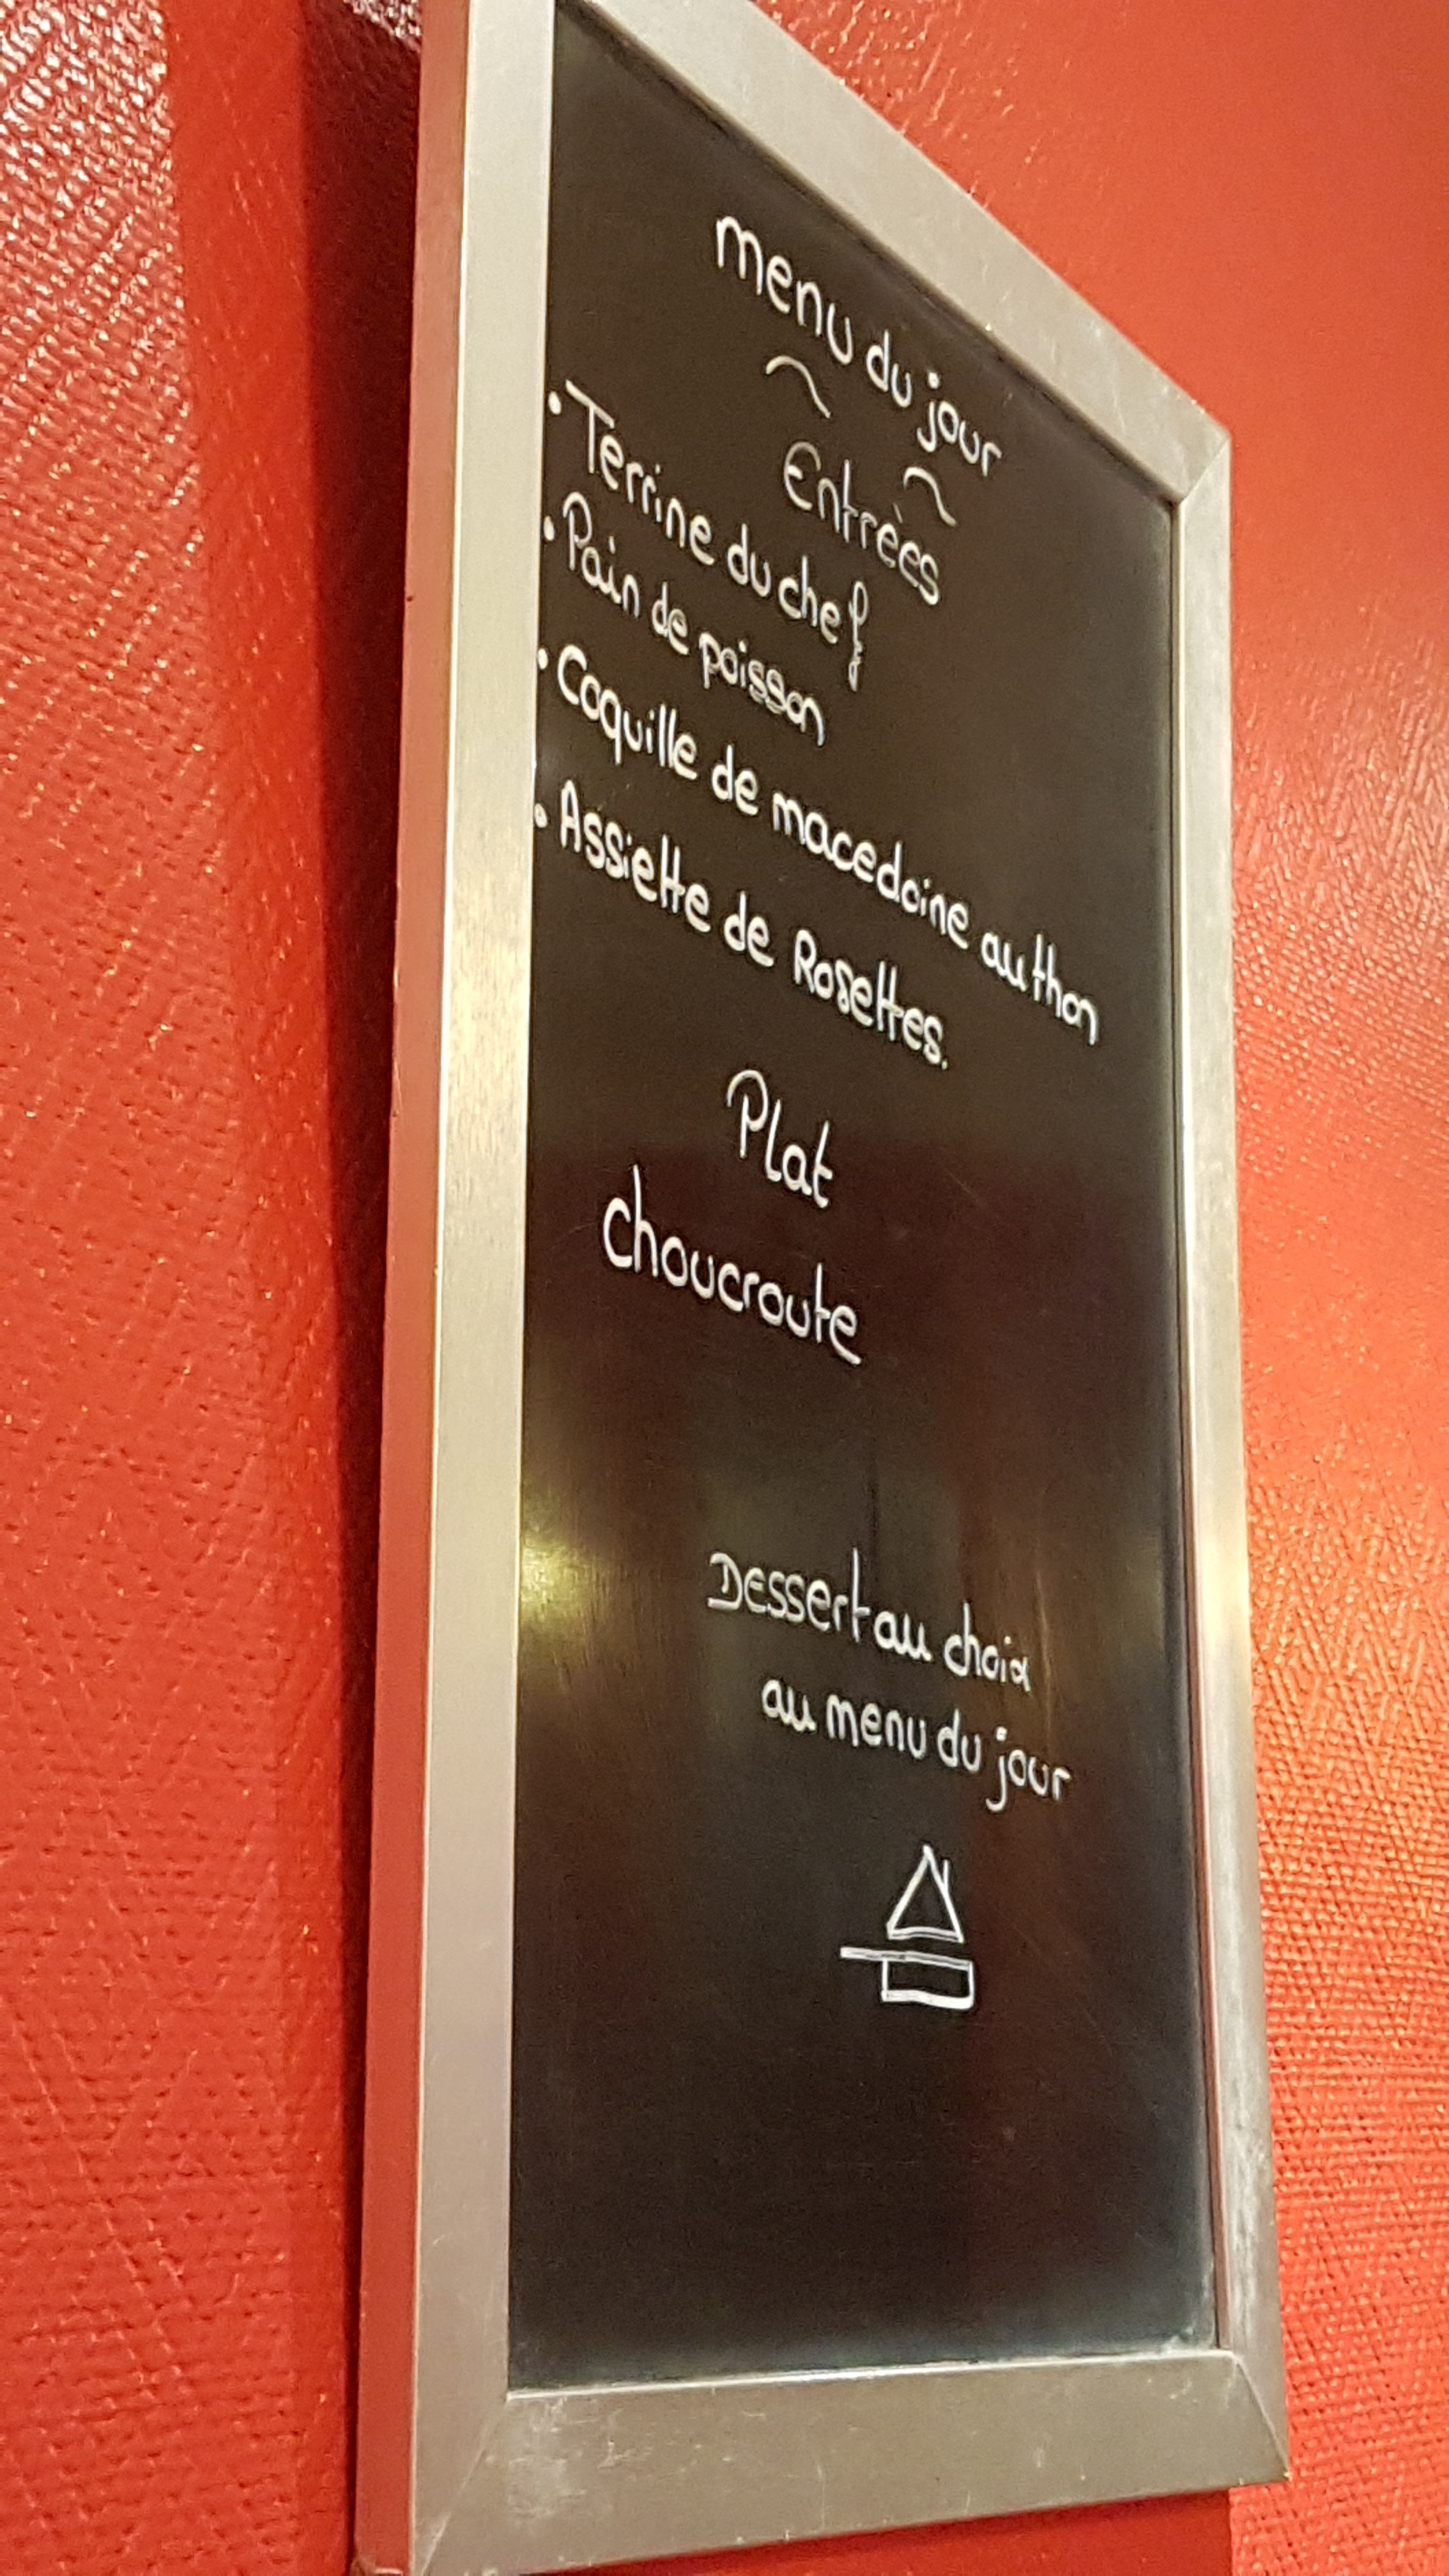 menu du jour
Entrèes
• Terrine du chef
• Pain de poisson
• Coquille de macedoine au thon
• Assiette de Rosettes.
Plat
choucroute
Dessert au choix
au menu du jour